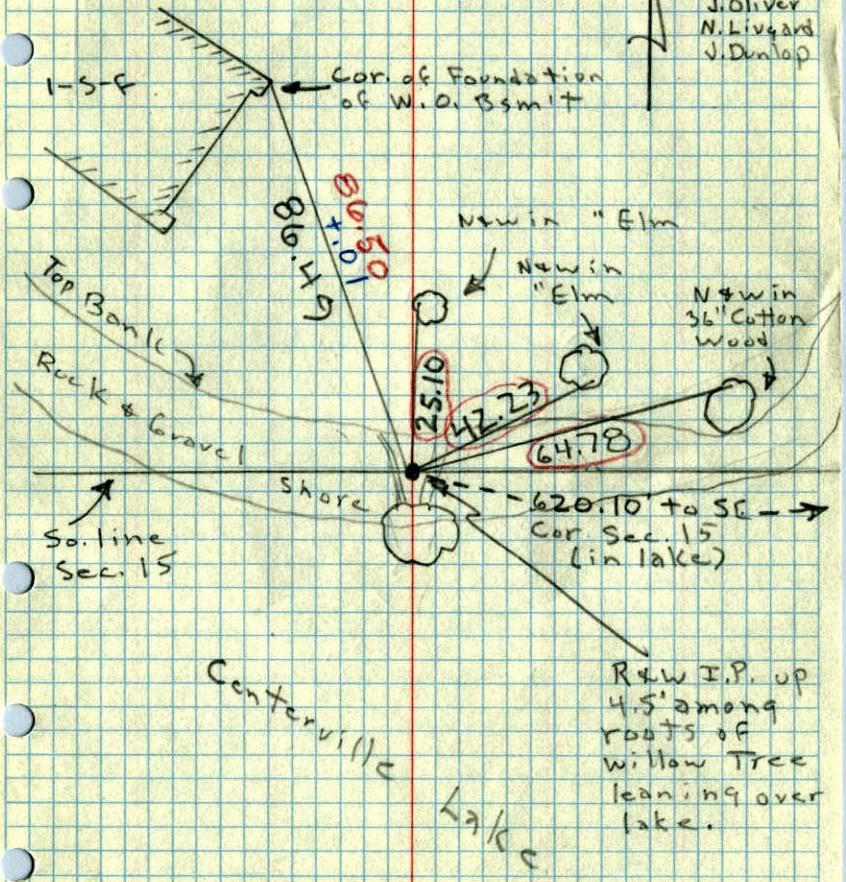 J. Oliver
N. Livgard
J. Dunlop
1-S-F
Cor. of Foundation
of W.O. Bsm't
86.50
+.01
86.49
N&W in "Elm
N&W in
"Elm
N&W in
36" Cotton
Wood
Top Bank
Rock & Gravel
25.10
42.23
64.78
Shore
620.10' to SE
Cor. Sec. 15
(in lake)
So. line
Sec. 15
R&W I.P. up
4.5' among
roots of
willow Tree
leaning over
lake.
Centerville
Lake